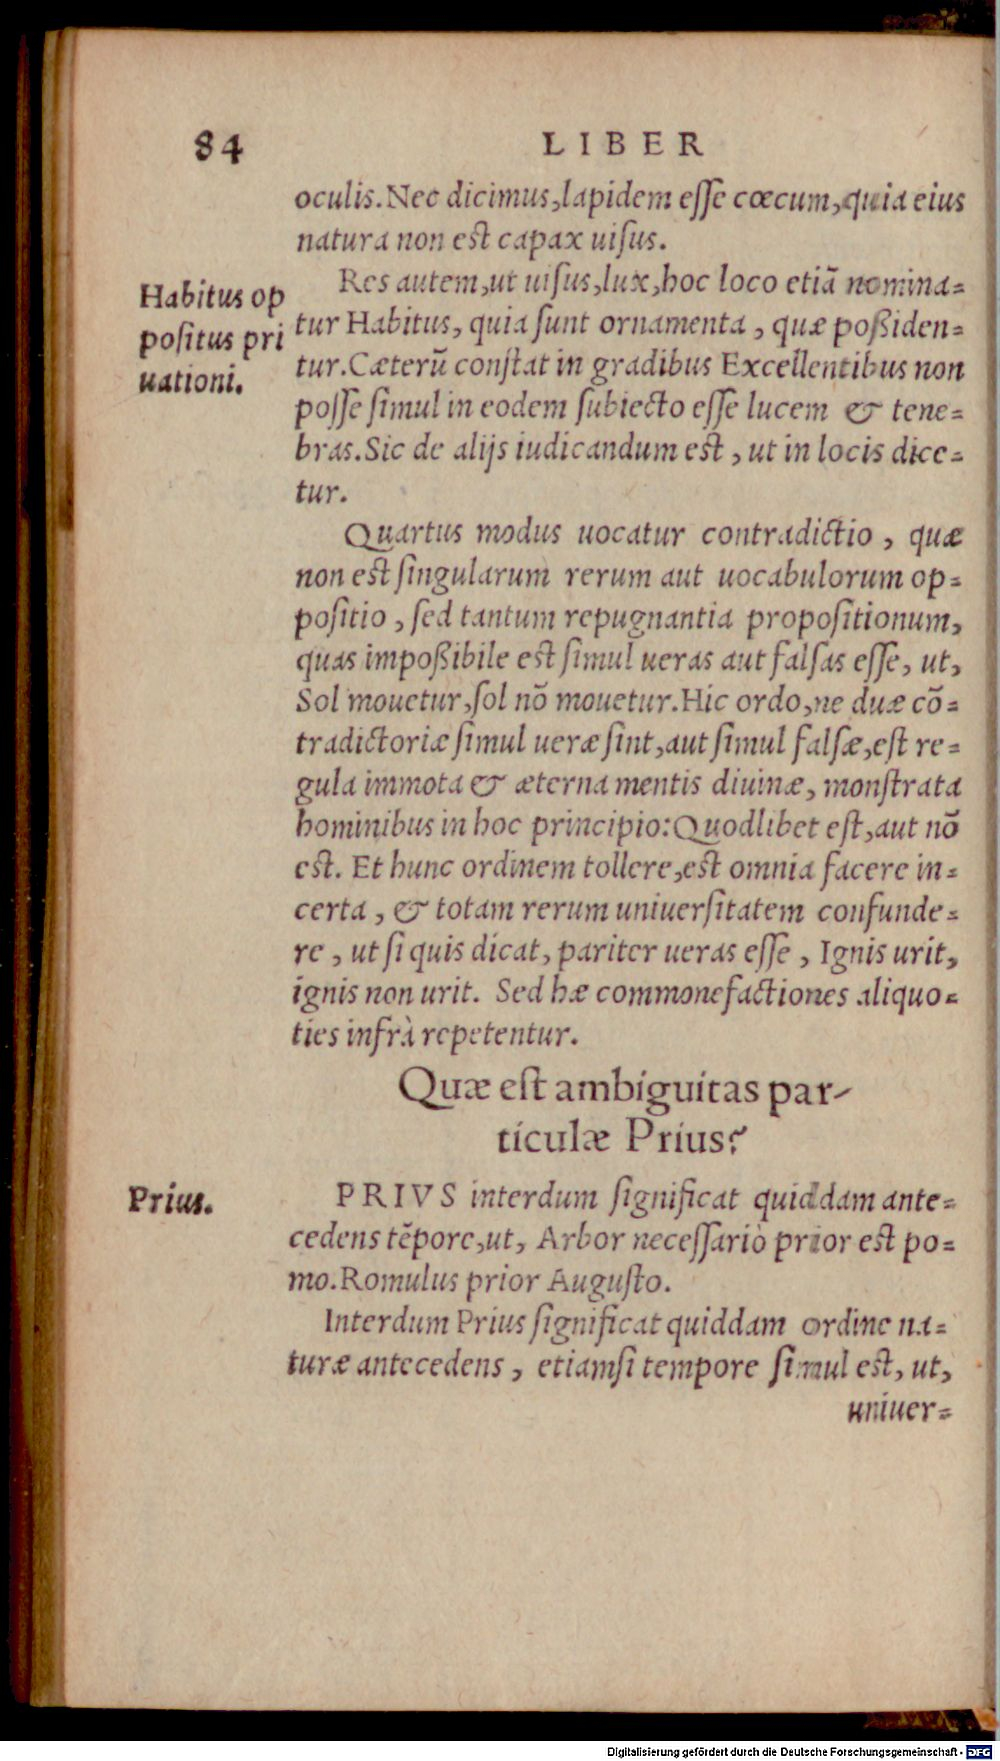 84 LIBER
oculis. Nec dicimus, lapidem eſſe cœcum, quia eius
natura non est capax uiſus.
Habitus op
poſitus pri
uationi.
Res autem, ut uiſus, lux, hoc loco etiã nomina-
tur Habitus, quia ſunt ornamenta, quæ poßiden-
tur. Cæterũ conſtat in gradibus Excellentibus non
poſſe ſimul in eodem ſubiecto eſſe lucem & tene-
bras. Sic de alijs iudicandum est, ut in locis dice-
tur.
Quartus modus uocatur contradictio, quæ
non est ſingularum rerum aut uocabulorum op-
poſitio, ſed tantum repugnantia propoſitionum,
quas impoßibile est ſimul ueras aut falſas eſſe, ut,
Sol mouetur, ſol nõ mouetur. Hic ordo, ne duæ cõ-
tradictoriæ ſimul ueræ ſint, aut ſimul falſæ, eſt re-
gula immota & æterna mentis diuinæ, monſtrata
hominibus in hoc principio: Quodlibet eſt, aut nõ
est. Et hunc ordinem tollere, est omnia facere in-
certa, & totam rerum uniuerſitatem confunde-
re, ut ſi quis dicat, pariter ueras eſſe, Ignis urit,
ignis non urit. Sed hæ commonefactiones aliquo-
ties infrà repetentur.
Quæ eſt ambiguitas par-
ticulæ Prius?
Prius.
PRIVS interdum ſignificat quiddam ante-
cedens tẽpore, ut, Arbor neceſſariò prior est po-
mo. Romulus prior Auguſto.
Interdum Prius ſignificat quiddam ordine na-
turæ antecedens, etiamſi tempore ſimul est, ut,
uniuer-
Digitalisierung gefördert durch die Deutsche Forschungsgemeinschaft - DFG